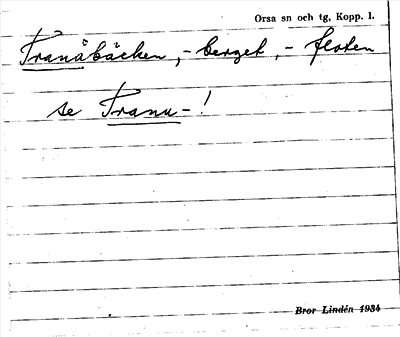 Orsa sn och tg, Kopp. l.
Tranåbäcken, - berget, - floten
se Tranu- !
Bror Lindén 1934